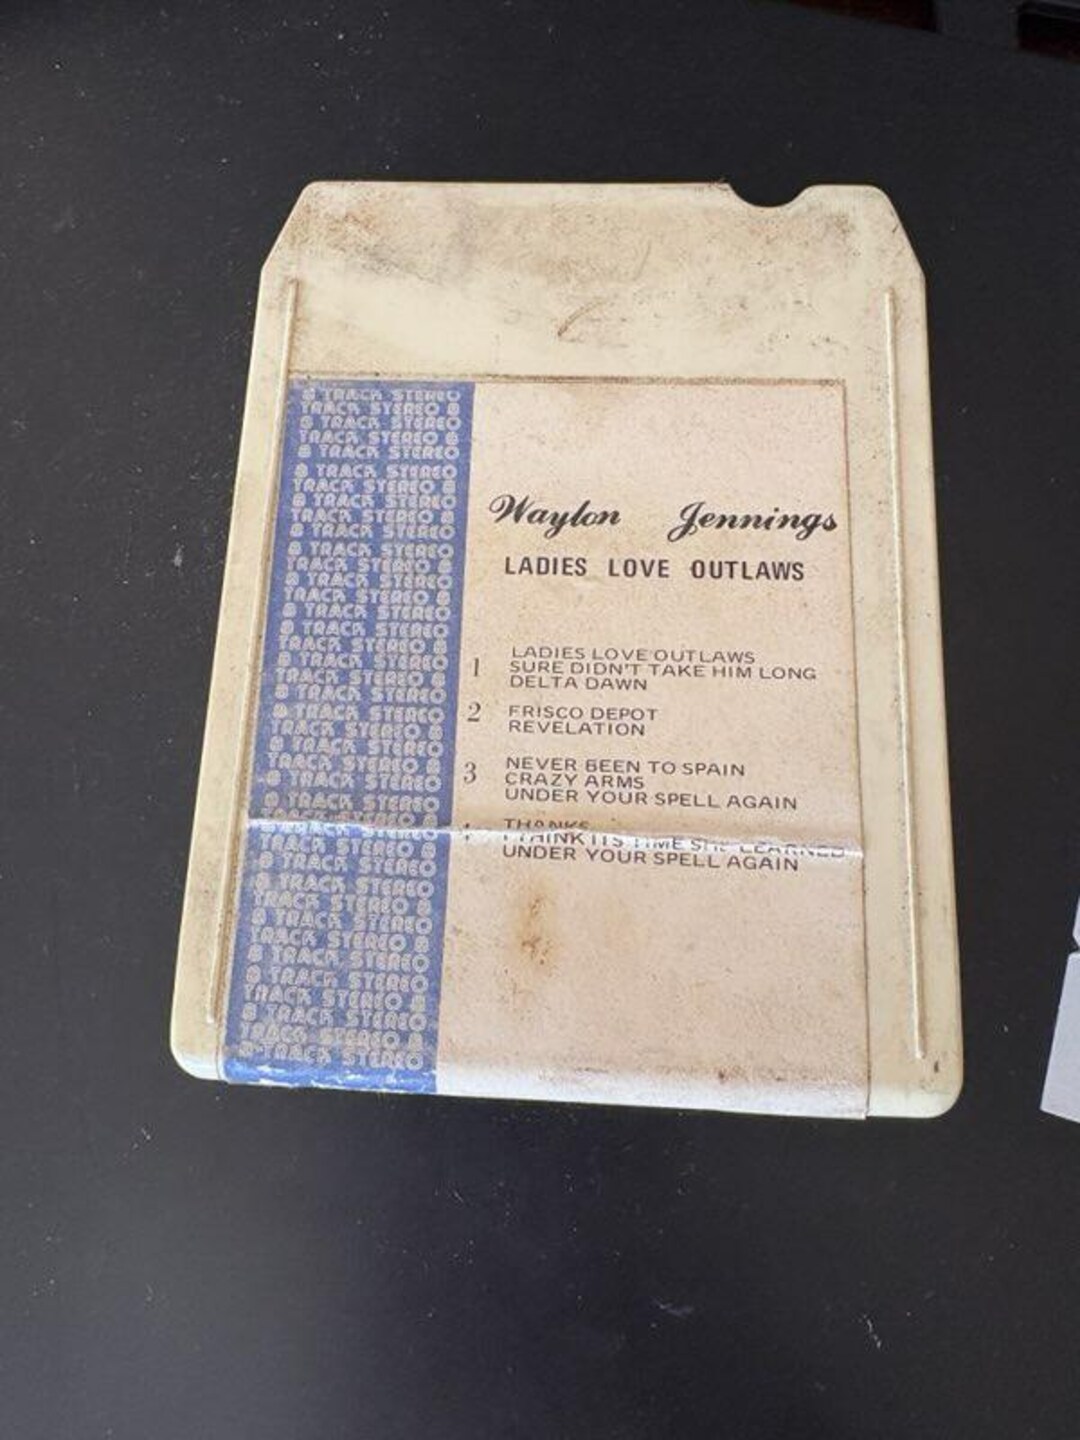 8 TRACK STEREO
TRACK STEREO 8
8 TRACK STEREO
TRACK STEREO 8
8 TRACK STEREO
8 TRACK STEREO
TRACK STEREO 8
8 TRACK STEREO
TRACK STEREO 8
8 TRACK STEREO
8 TRACK STEREO
TRACK STEREO 8
8 TRACK STEREO
TRACK STEREO 8
8 TRACK STEREO
8 TRACK STEREO
TRACK STEREO 8
8 TRACK STEREO
TRACK STEREO 8
8 TRACK STEREO
8 TRACK STEREO
TRACK STEREO 8
8 TRACK STEREO
TRACK STEREO 8
8 TRACK STEREO
8 TRACK STEREO
TRACK STEREO 8
8 TRACK STEREO
TRACK STEREO 8
8 TRACK STEREO
8 TRACK STEREO
TRACK STEREO 8
8 TRACK STEREO
TRACK STEREO 8
8 TRACK STEREO
8 TRACK STEREO
TRACK STEREO 8
8 TRACK STEREO
TRACK STEREO 8
8 TRACK STEREO
Waylon Jennings
LADIES LOVE OUTLAWS
1 LADIES LOVE OUTLAWS
SURE DIDN'T TAKE HIM LONG
DELTA DAWN
2 FRISCO DEPOT
REVELATION
3 NEVER BEEN TO SPAIN
CRAZY ARMS
UNDER YOUR SPELL AGAIN
THANKS
I THINK ITS TIME SHE LEARNED
UNDER YOUR SPELL AGAIN